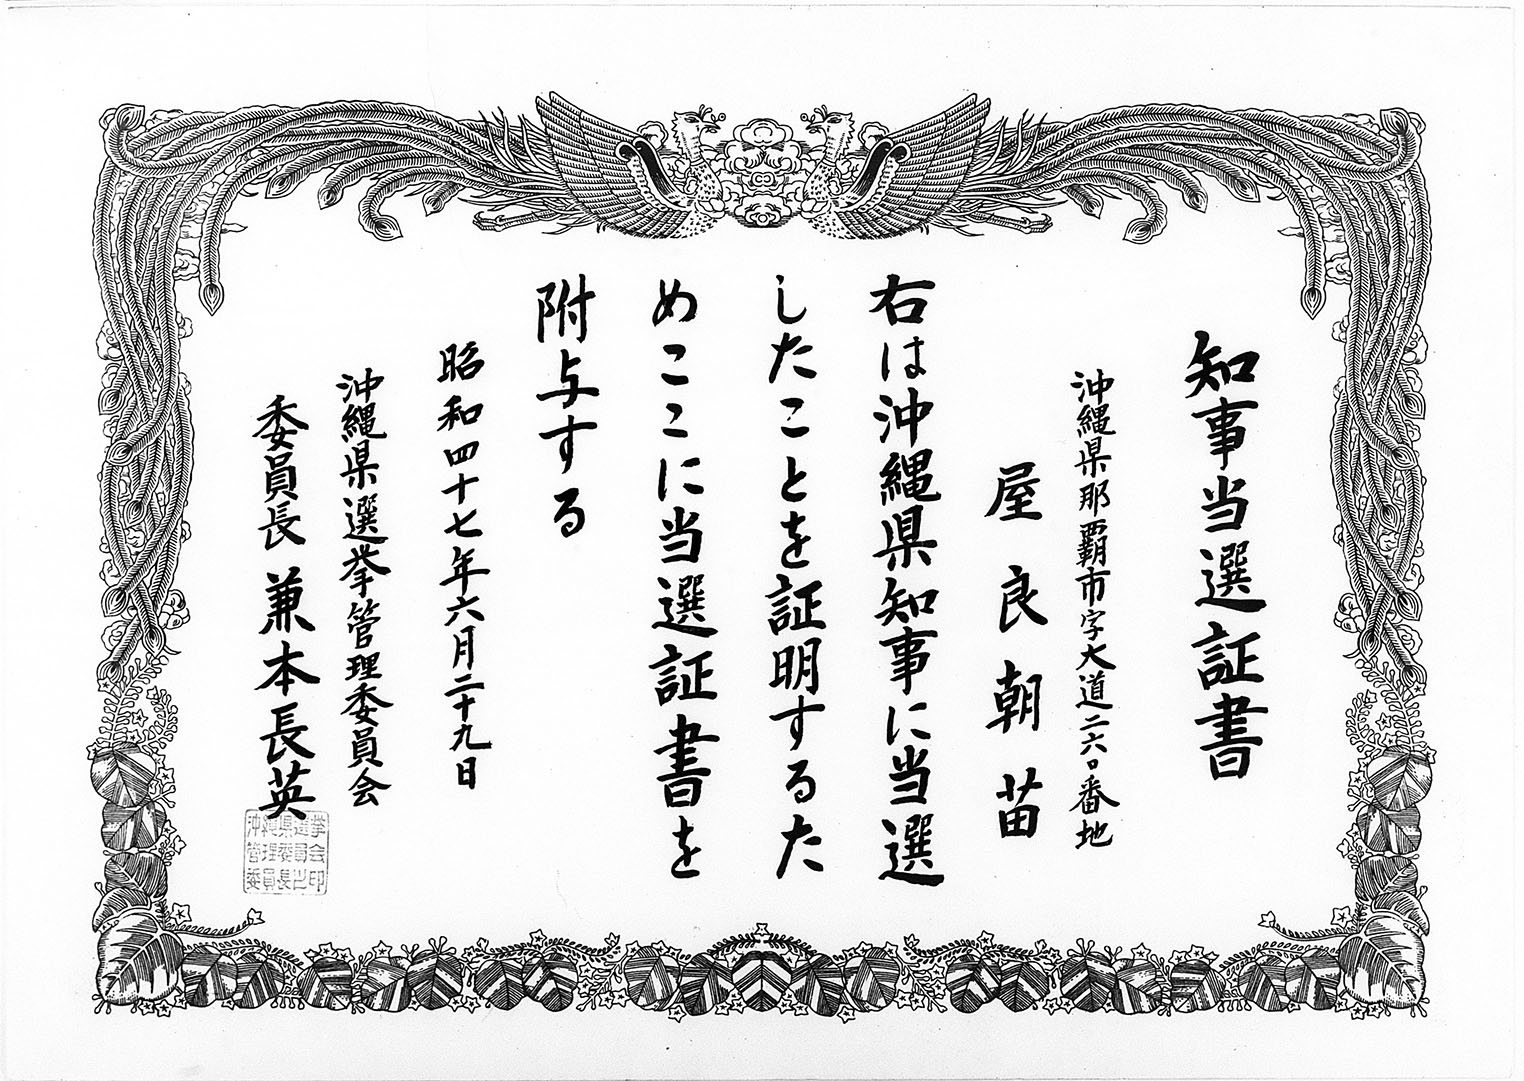 知事当選証書
沖縄県那覇市字大道二六〇番地
屋良朝苗
右は沖縄県知事に当選
したことを証明するた
めここに当選証書を
附与する
昭和四十七年六月二十九日
沖縄県選挙管理委員会
委員長 兼本長英
沖縄県選挙
管理委員会
委員長之印